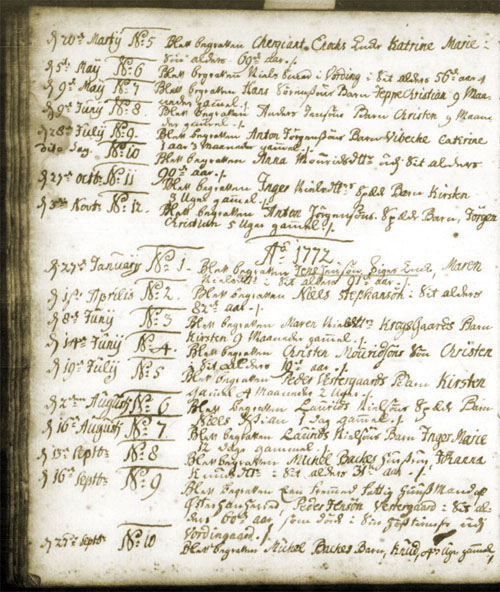 d 20de Martij No 5 Blev begraven Chergiant Enochs Enke Katrine Marie i
Sin alders 69de aar ./.
d 5te May No 6 Blev begraven Niels i Vording i sit alders 56de aar ./.
d 9de May No 7 Blev begraven Hans Sörensens Barn Jeppe Christian 9 Maa-
neder gammel ./.
d 9de Junij No 8 Blev begraven Anders Jensens Barn Christen 9 Maane-
der gammel ./.
d 28de Julij No 9. Blev begraven Anton Jörgensens Barn Vibecke Catirine
1 aar 3 Maaneder gammel ./.
dito Dag. No 10 Blev begraven Anna Mouridsdtr udi Sit alders
90de aar ./.
d 27de octb. No 11 Blev begraven Inger Nielsdtrs spæd Barn Kirsten
3 Uger gammel ./.
d 3de Novb. No 12. Blev begraven Anton Jörgensens Spæde Barn, Jörgen
Christian 5 Uger gammel ./.
Ao 1772
d 27de January No 1. Blev begraven Jens Enke, Maren
Nielsdtr i sit alders 91de aar ./.
d 1ste Aprilis No 2. Blev begraven Niels Stephansen i Sit alders
82de aar ./.
d 8de Junij No 3 Blev begraven Maren Nielsdtr Krogsgaards Barn
Kirsten 9 Maaneder gammel ./.
d 14de Junij No 4. Blev begraven Christen Mouridsens Sön Christen
i Sit alders 19de aar ./.
d 19de Julij No 5 Blev begraven Peder Vestergaards Barn Kirsten
gamel 4 Maaneder 2 Uger ./.
d 2den Augustj No 6 Blev begraven Laurids Nielsens Spæd Barn
Niels 1 Dag gammel ./.
d 16de Augustj No 7. Blev begraven Laurids Nielsens Barn Inger Marie
12 Dage gammel ./.
d 13de Septbr No 8 Blev begraven Michel Backes Hustrue Johanna
Knudsdtr i Sit alders 31de aar ./.
d 16de Septbr No 9 Blev begraven Een fremmed fattig Huus Mand af
Peder Jensen Vestergaard i Sit al-
ders 60de aar, som döde i
Vordingaard ./.
d 27de Septbr No 10 Blev begraven Michel Backes Barn, Knud, Uger gammel